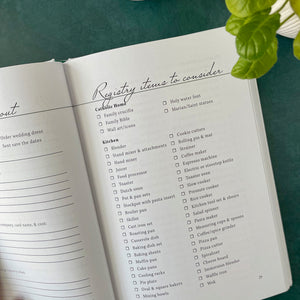 out
Order wedding dress
Sent save the dates
Registry items to consider
Catholic Home
Family crucifix
Family Bible
Wall art/icons
Holy water font
Marian/Saint statues
Kitchen
Blender
Stand mixer & attachments
Hand mixer
Juicer
Food processor
Toaster
Dutch oven
Pot & pan sets
Stockpot with pasta insert
Broiler pan
Skillet
Cast iron set
Roasting pan
Casserole dish
Baking dish set
Baking sheets
Muffin pan
Cake pans
Cooling racks
Pie plate
Oval & square bakers
Mixing bowls
Cookie cutters
Rolling pin & mat
Strainer
Coffee maker
Espresso machine
Electric or stovetop kettle
Toaster oven
Slow cooker
Pressure cooker
Rice cooker
Kitchen tool set & shears
Salad spinner
Pasta maker
Measuring cups & spoons
Coffee/spice grinder
Pizza pan
Pizza cutter
Spiralizer
Cheese board
Immersion blender
Waffle iron
Wok